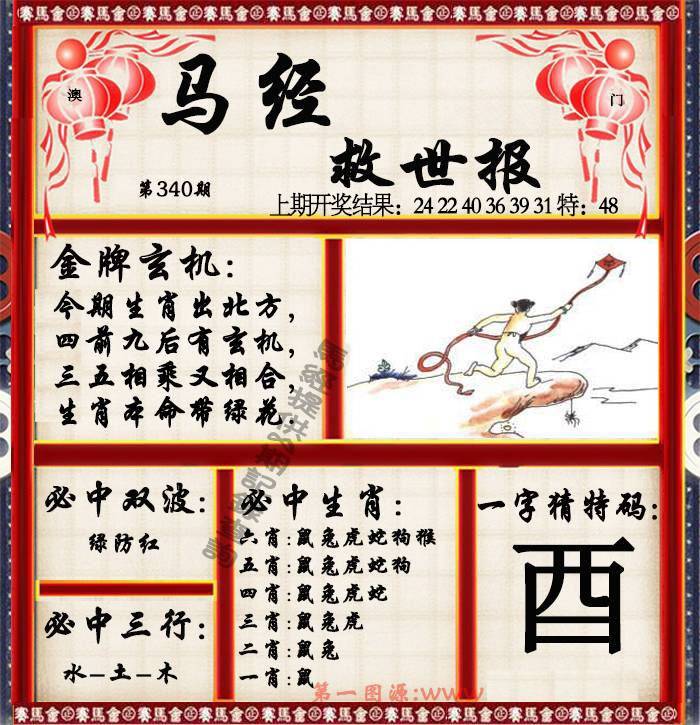 賽馬會正賽馬會正賽馬會正賽馬會正賽馬會正
澳
门
马经
救世报
第340期
上期开奖结果：24 22 40 36 39 31 特：48
金牌玄机：
今期生肖出北方，
四前九后有玄机，
三五相乘又相合，
生肖本命带绿花.
必中双波：
绿防红
必中三行：
水–土–木
必中生肖：
六肖:鼠兔虎蛇狗猴
五肖:鼠兔虎蛇狗
四肖:鼠兔虎蛇
三肖:鼠兔虎
二肖:鼠兔
一肖:鼠
一字猜特码：
酉
第一图源:www